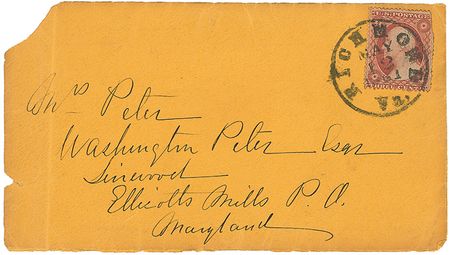 U.S. POSTAGE
THREE CENTS
RICHMOND Va.
MAY
2
1
Mrs Peter
Washington Peter Esqr
Linwood
Ellicotts Mills P. O.
Maryland